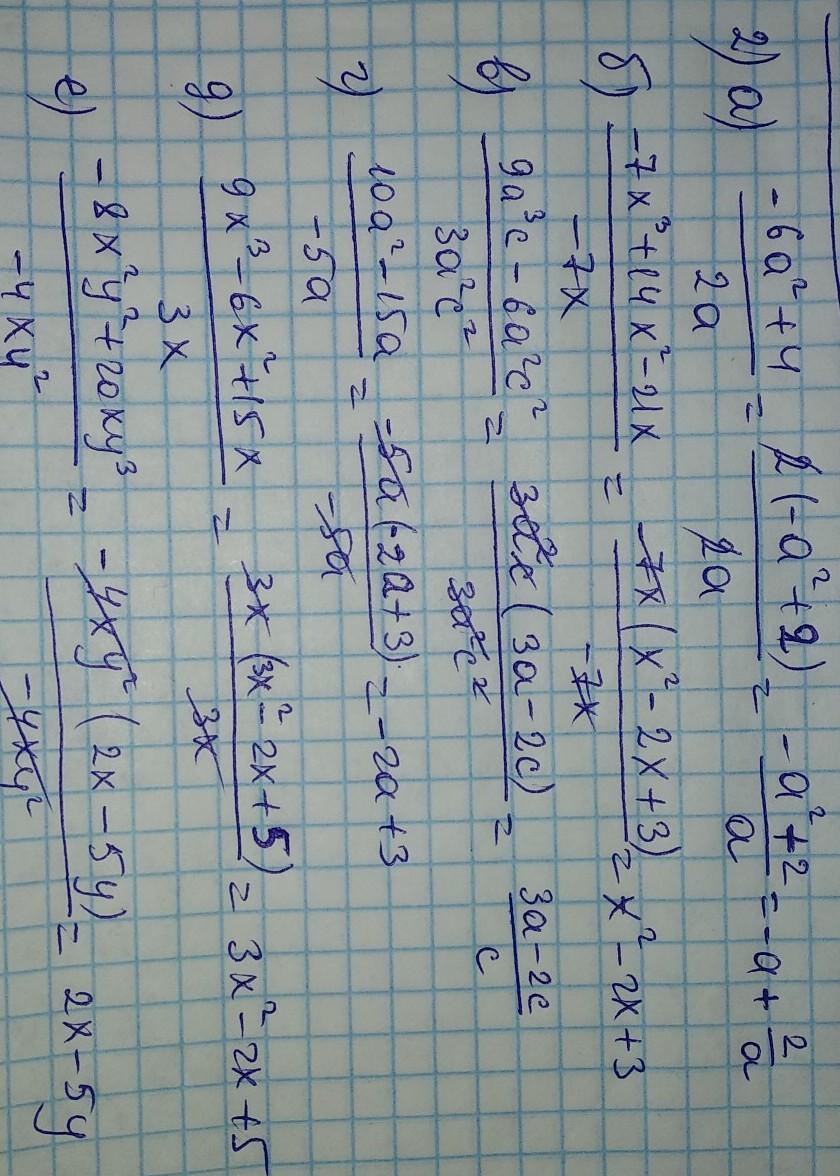 2) а) (-6a²+4)/(2a) = (2(-a²+2))/(2a) = (-a²+2)/a = -a + 2/a
б) (-7x³+14x²-21x)/(-7x) = (-7x(x²-2x+3))/(-7x) = x²-2x+3
в) (9a³c-6a²c²)/(3a²c²) = (3a²c(3a-2c))/(3a²c²) = (3a-2c)/c
г) (10a²-15a)/(-5a) = (-5a(-2a+3))/(-5a) = -2a+3
д) (9x³-6x²+15x)/(3x) = (3x(3x²-2x+5))/(3x) = 3x²-2x+5
е) (-8x²y²+20xy³)/(-4xy²) = (-4xy²(2x-5y))/(-4xy²) = 2x-5y